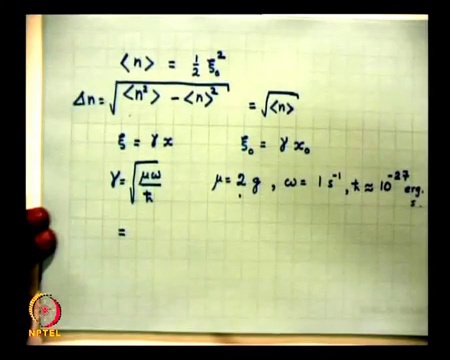 ⟨n⟩ = 1/2 ξ₀²
Δn = √(⟨n²⟩ - ⟨n⟩²) = √⟨n⟩
ξ = γx ξ₀ = γx₀
γ = √(μω/ħ) μ = 2 g, ω = 1 s⁻¹, ħ ≈ 10⁻²⁷ erg. s.
=
NPTEL